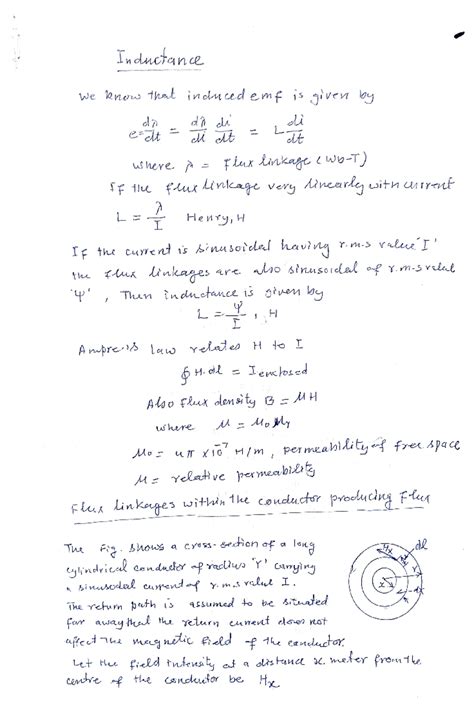 Inductance
We know that induced emf is given by
e = dλ/dt = dλ/di di/dt = L di/dt
where λ = Flux linkage (Wb-T)
If the flux linkage very linearly with current
L = λ/I Henry, H
If the current is sinusoidal having r.m.s value 'I'
the flux linkages are also sinusoidal of r.m.s value
'Ψ', Then inductance is given by
L = Ψ/I, H
Ampre's law relates H to I
∮H.dl = I enclosed
Also flux density B = μH
where μ = μ₀μr
μ₀ = 4π x10⁻⁷ H/m, permeability of free space
μ = relative permeability
Flux linkages within the conductor producing Flux
The Fig. shows a cross-section of a long
cylindrical conductor of radius 'r' carrying
a sinusoidal current of r.m.s value I.
The return path is assumed to be situated
far away that the return current does not
affect the magnetic field of the conductor.
Let the field intensity at a distance x meter from the
centre of the conductor be Hx
dl
Hx
x